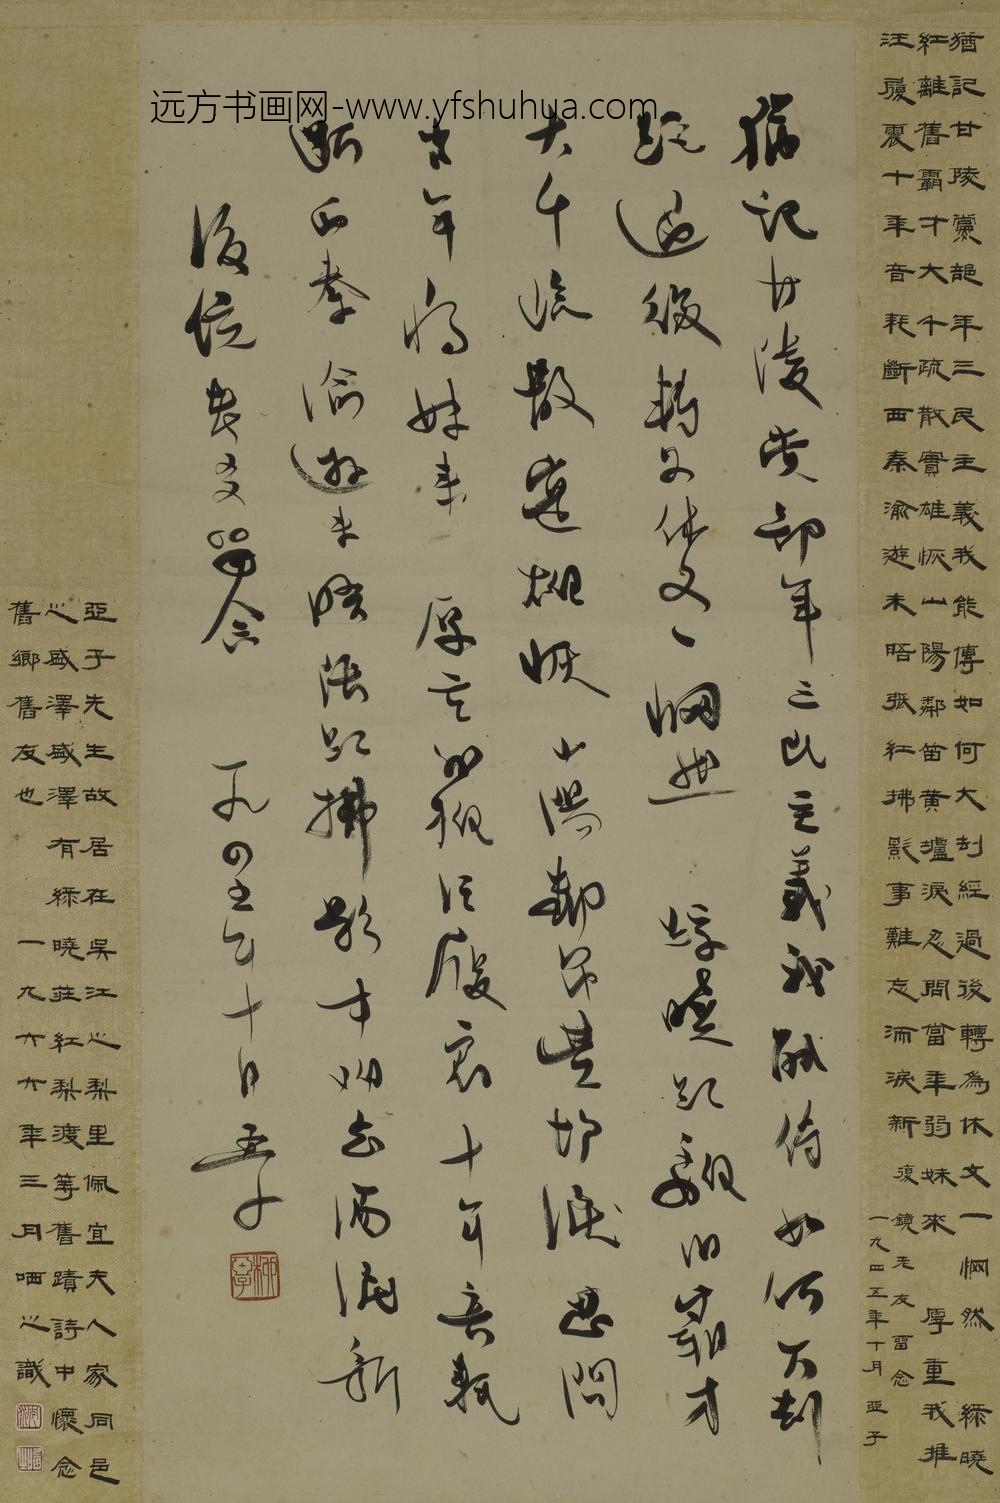 远方书画网-www.yfshuhua.com
猶記甘陵黨部年三民主義我能傳如何大刦
經過後轉為休文一惘然 綠曉紅離舊霸才
大千疏散實雄恢山陽鄰笛黃壚淚忍問
當年弱妹來 厚重我推汪履震十年音耗
斷西秦渝遊未晤張紅拂影事難忘洏淚新
復鏡老友留念 一九四五年十月亞子
猶記甘陵黨部年三民主義我能傳如何大刦經過後轉為休文一惘然 綠曉
紅離舊霸才大千疏散實雄恢山陽鄰笛黃壚淚忍問當年弱妹來 厚重我推
汪履震十年音耗斷西秦渝遊未晤張紅拂影事難忘洏淚新 復鏡老友留念
一九四五年十月 亞子
亞子先生故居在吳江之梨里佩宜夫人家同邑
之盛澤盛澤有綠曉莊紅梨渡等舊蹟詩中懷念
舊鄉舊友也 一九六六年三月 之識